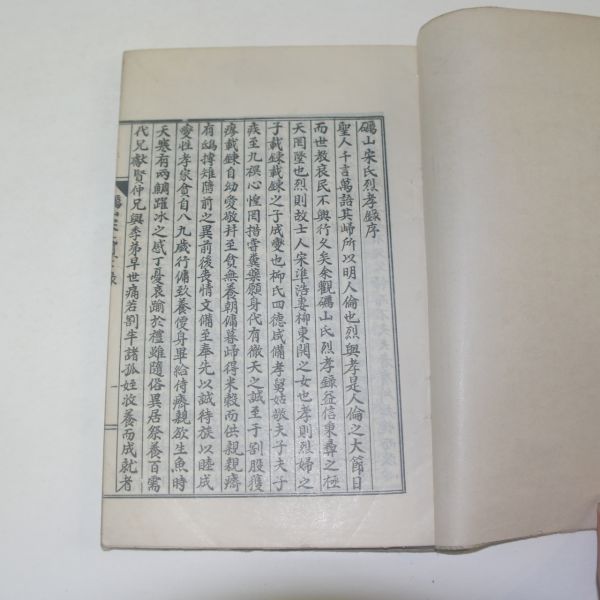 礪山宋氏烈孝錄序
聖人千言萬語其歸所以明人倫也烈與孝是人倫之大節日
而世敎衰民不興行久矣余觀礪山氏烈孝錄益信秉彛之極
天罔墜也烈則故士人宋準浩妻柳東関之女也孝則烈婦之
子載鍊載鍊之子成燮也柳氏四德咸備孝舅姑敬夫子夫子
疾至九㮣心惶罔措嘗糞藥願身代有徹天之誠至于割股獲
瘳載鍊自幼愛敬幷至貧無養朝傭暮歸得米穀而供親親癠
有鴟搏雉隨前之異前後喪情文備至奉先以誠待族以睦成
燮性孝家食自八九歲行傭致養便身畢給侍癠親欲生魚時
天寒有兩鯛躍冰之感丁憂哀踰於禮雖隨俗異居祭養百需
代兄獻賢仲兄與季弟早世痛若割半諸孤姪收養而成就者